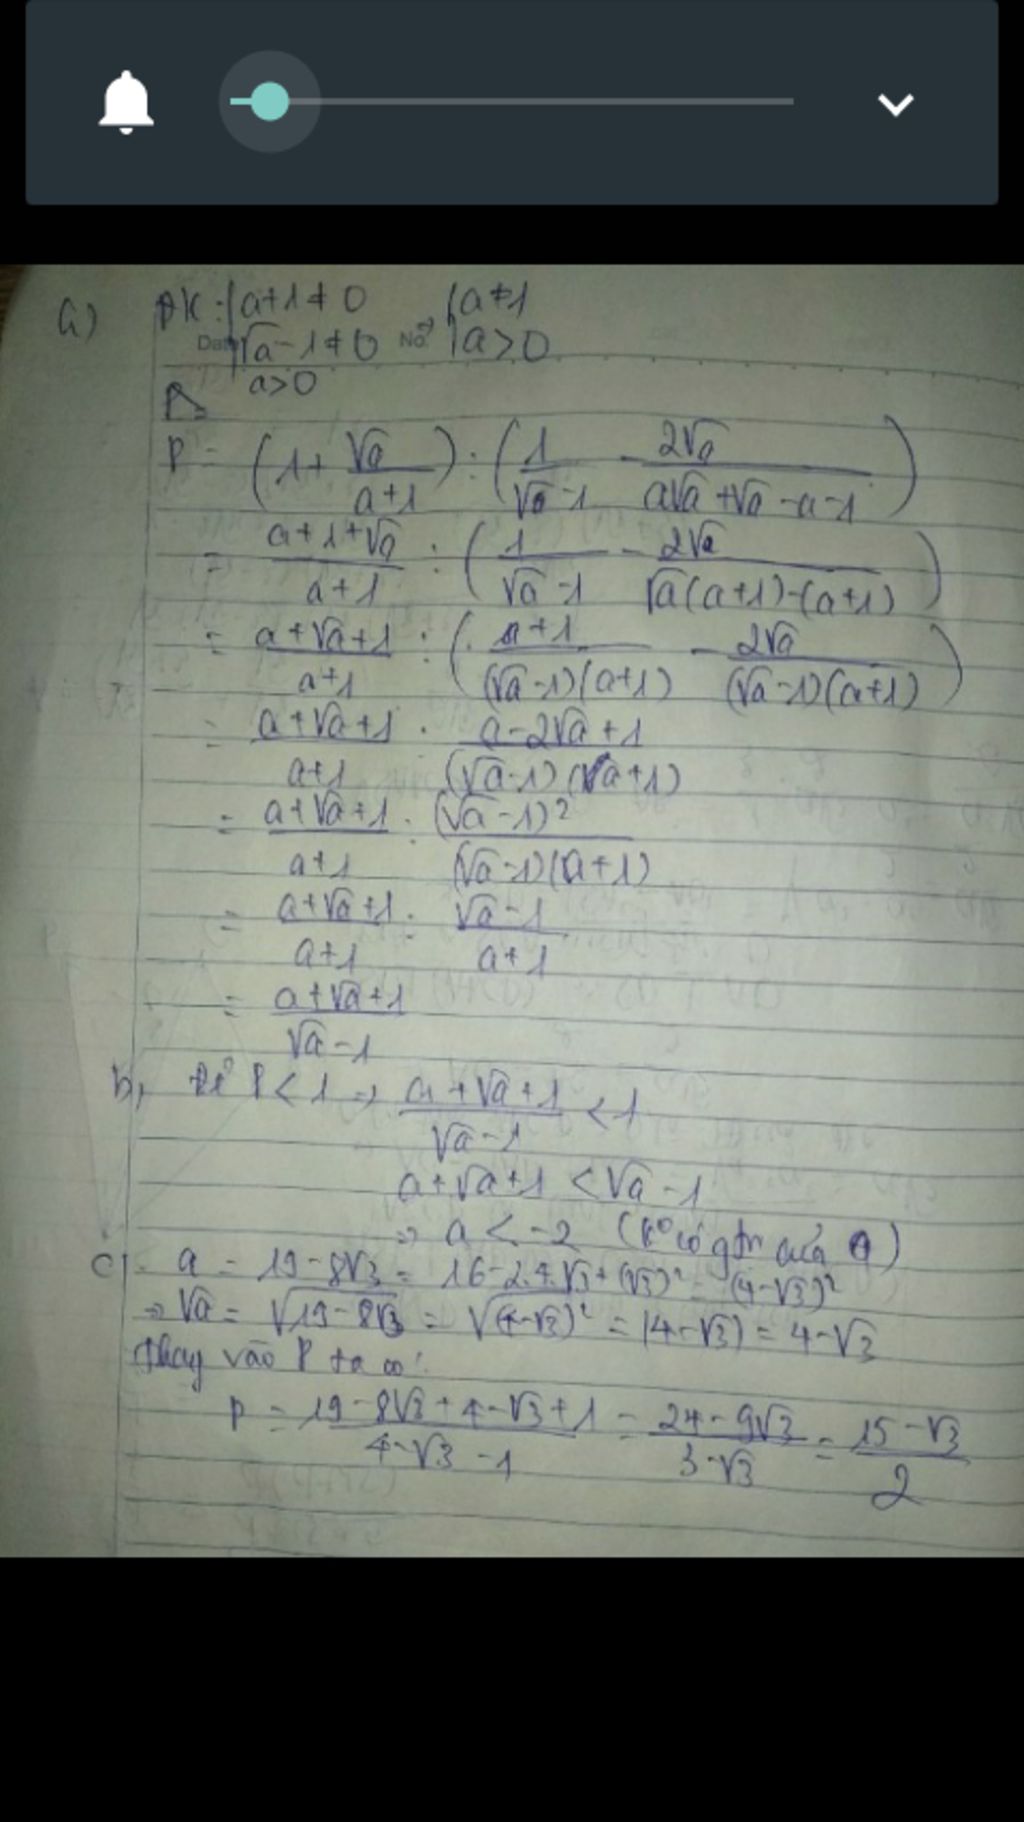 a) ĐK: { a+1≠0 { a≠1
Date No.
√a-1≠0 => a>0
a>0
P = (1+ √a/(a+1)) : (1/(√a-1) - 2√a/(a√a+√a-a-1))
= (a+1+√a)/(a+1) : (1/(√a-1) - 2√a/(√a(a+1)-(a+1)))
= (a+√a+1)/(a+1) : ((a+1)/((√a-1)(a+1)) - 2√a/((√a-1)(a+1)))
= (a+√a+1)/(a+1) : (a-2√a+1)/((√a-1)(a+1))
= (a+√a+1)/(a+1) : (√a-1)²/((√a-1)(a+1))
= (a+√a+1)/(a+1) : (√a-1)/(a+1)
= (a+√a+1)/(√a-1)
b, Để P<1 => (a+√a+1)/(√a-1) <1
a+√a+1 <√a-1
=> a < -2 (k° có gtri của a)
c) a = 19-8√3 = 16-2.4.√3+(√3)² = (4-√3)²
=> √a = √(19-8√3) = √(4-√3)² = |4-√3| = 4-√3
Thay vào P ta có:
P = (19-8√3+4-√3+1)/(4-√3-1) = (24-9√3)/(3-√3) = (15-√3)/2